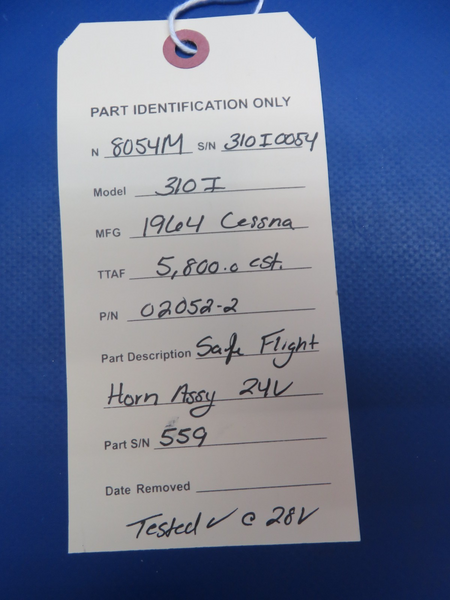 PART IDENTIFICATION ONLY
N 8054M S/N 310I0054
Model 310I
MFG 1964 Cessna
TTAF 5,800.0 est.
P/N 02052-2
Part Description Safe Flight
Horn Assy 24V
Part S/N 559
Date Removed
Tested ✓ @ 28V